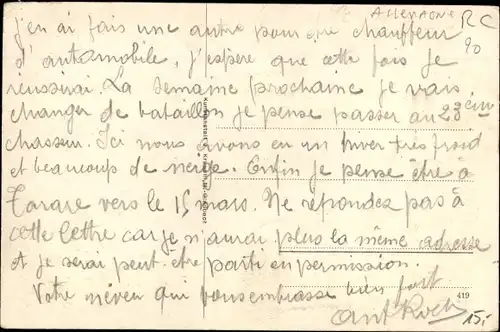 ALLEMAGNE RC
90
j'en ai fais une autre pour être chauffeur
d'automobile, j'espère que cette fois je
réussirai. La semaine prochaine je vais
changer de bataillon je pense passer au 23ème
chasseur. Ici nous avons eu un hiver très froid
et beaucoup de neige. Enfin je pense être à
Tarare vers le 15 mars. Ne repondez pas à
cette lettre car je n'aurai plus la même adresse
et je serai peut-être parti en permission.
Votre neveu qui vous embrasse bien fort
419
Ant Roch
15,-